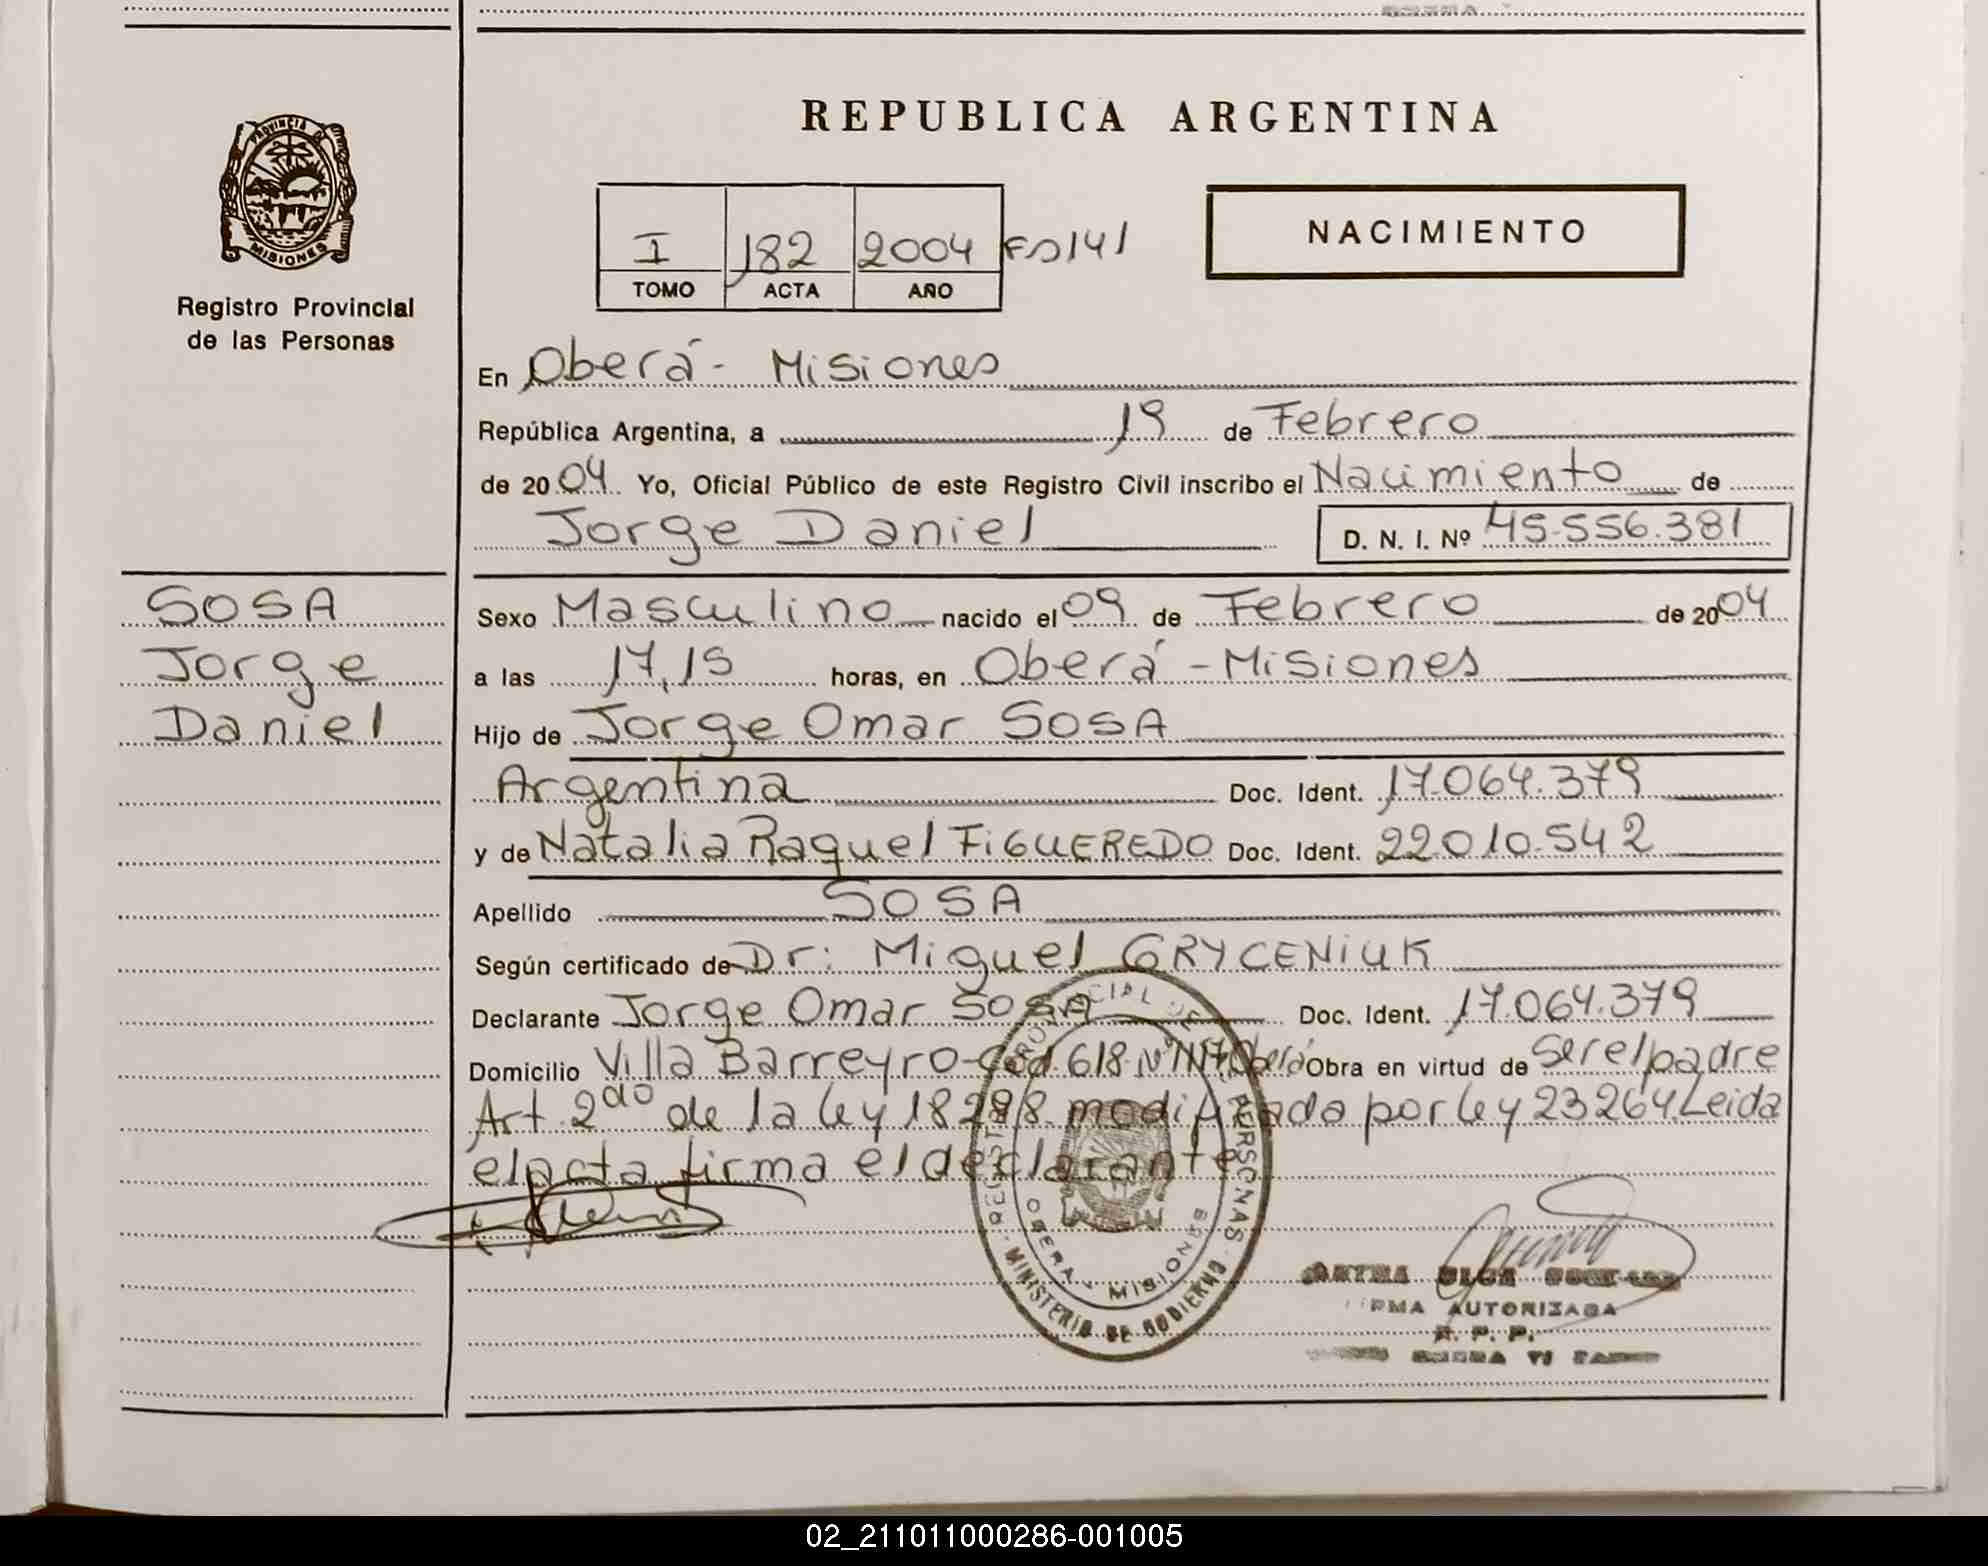 PROVINCIA DE
MISIONES
Registro Provincial
de las Personas
SOSA
Jorge
Daniel
REPUBLICA ARGENTINA
I 182 2004 Fº 141
TOMO ACTA AÑO
NACIMIENTO
En Oberá - Misiones
República Argentina, a 19 de Febrero
de 2004 Yo, Oficial Público de este Registro Civil inscribo el Nacimiento de
Jorge Daniel D. N. I. Nº 45.556.381
Sexo Masculino nacido el 09 de Febrero de 2004
a las 17,15 horas, en Oberá - Misiones
Hijo de Jorge Omar SOSA
Argentina Doc. Ident. 17.064.379
y de Natalia Raquel FIGUEREDO Doc. Ident. 22.010.542
Apellido SOSA
Según certificado de Dr: Miguel GRYCENIUK
Declarante Jorge Omar SOSA Doc. Ident. 17.064.379
Domicilio Villa Barreyro - 618 Nº Oberá Obra en virtud de ser el padre
Art. 2do de la ley 18298 modificada por ley 23264 Leida
el acta firma el declarante
REGISTRO PROVINCIAL DE LAS PERSONAS
OBERA - MISIONES
MINISTERIO DE GOBIERNO
OLGA
FIRMA AUTORIZADA
R. P. P.
02_211011000286-001005